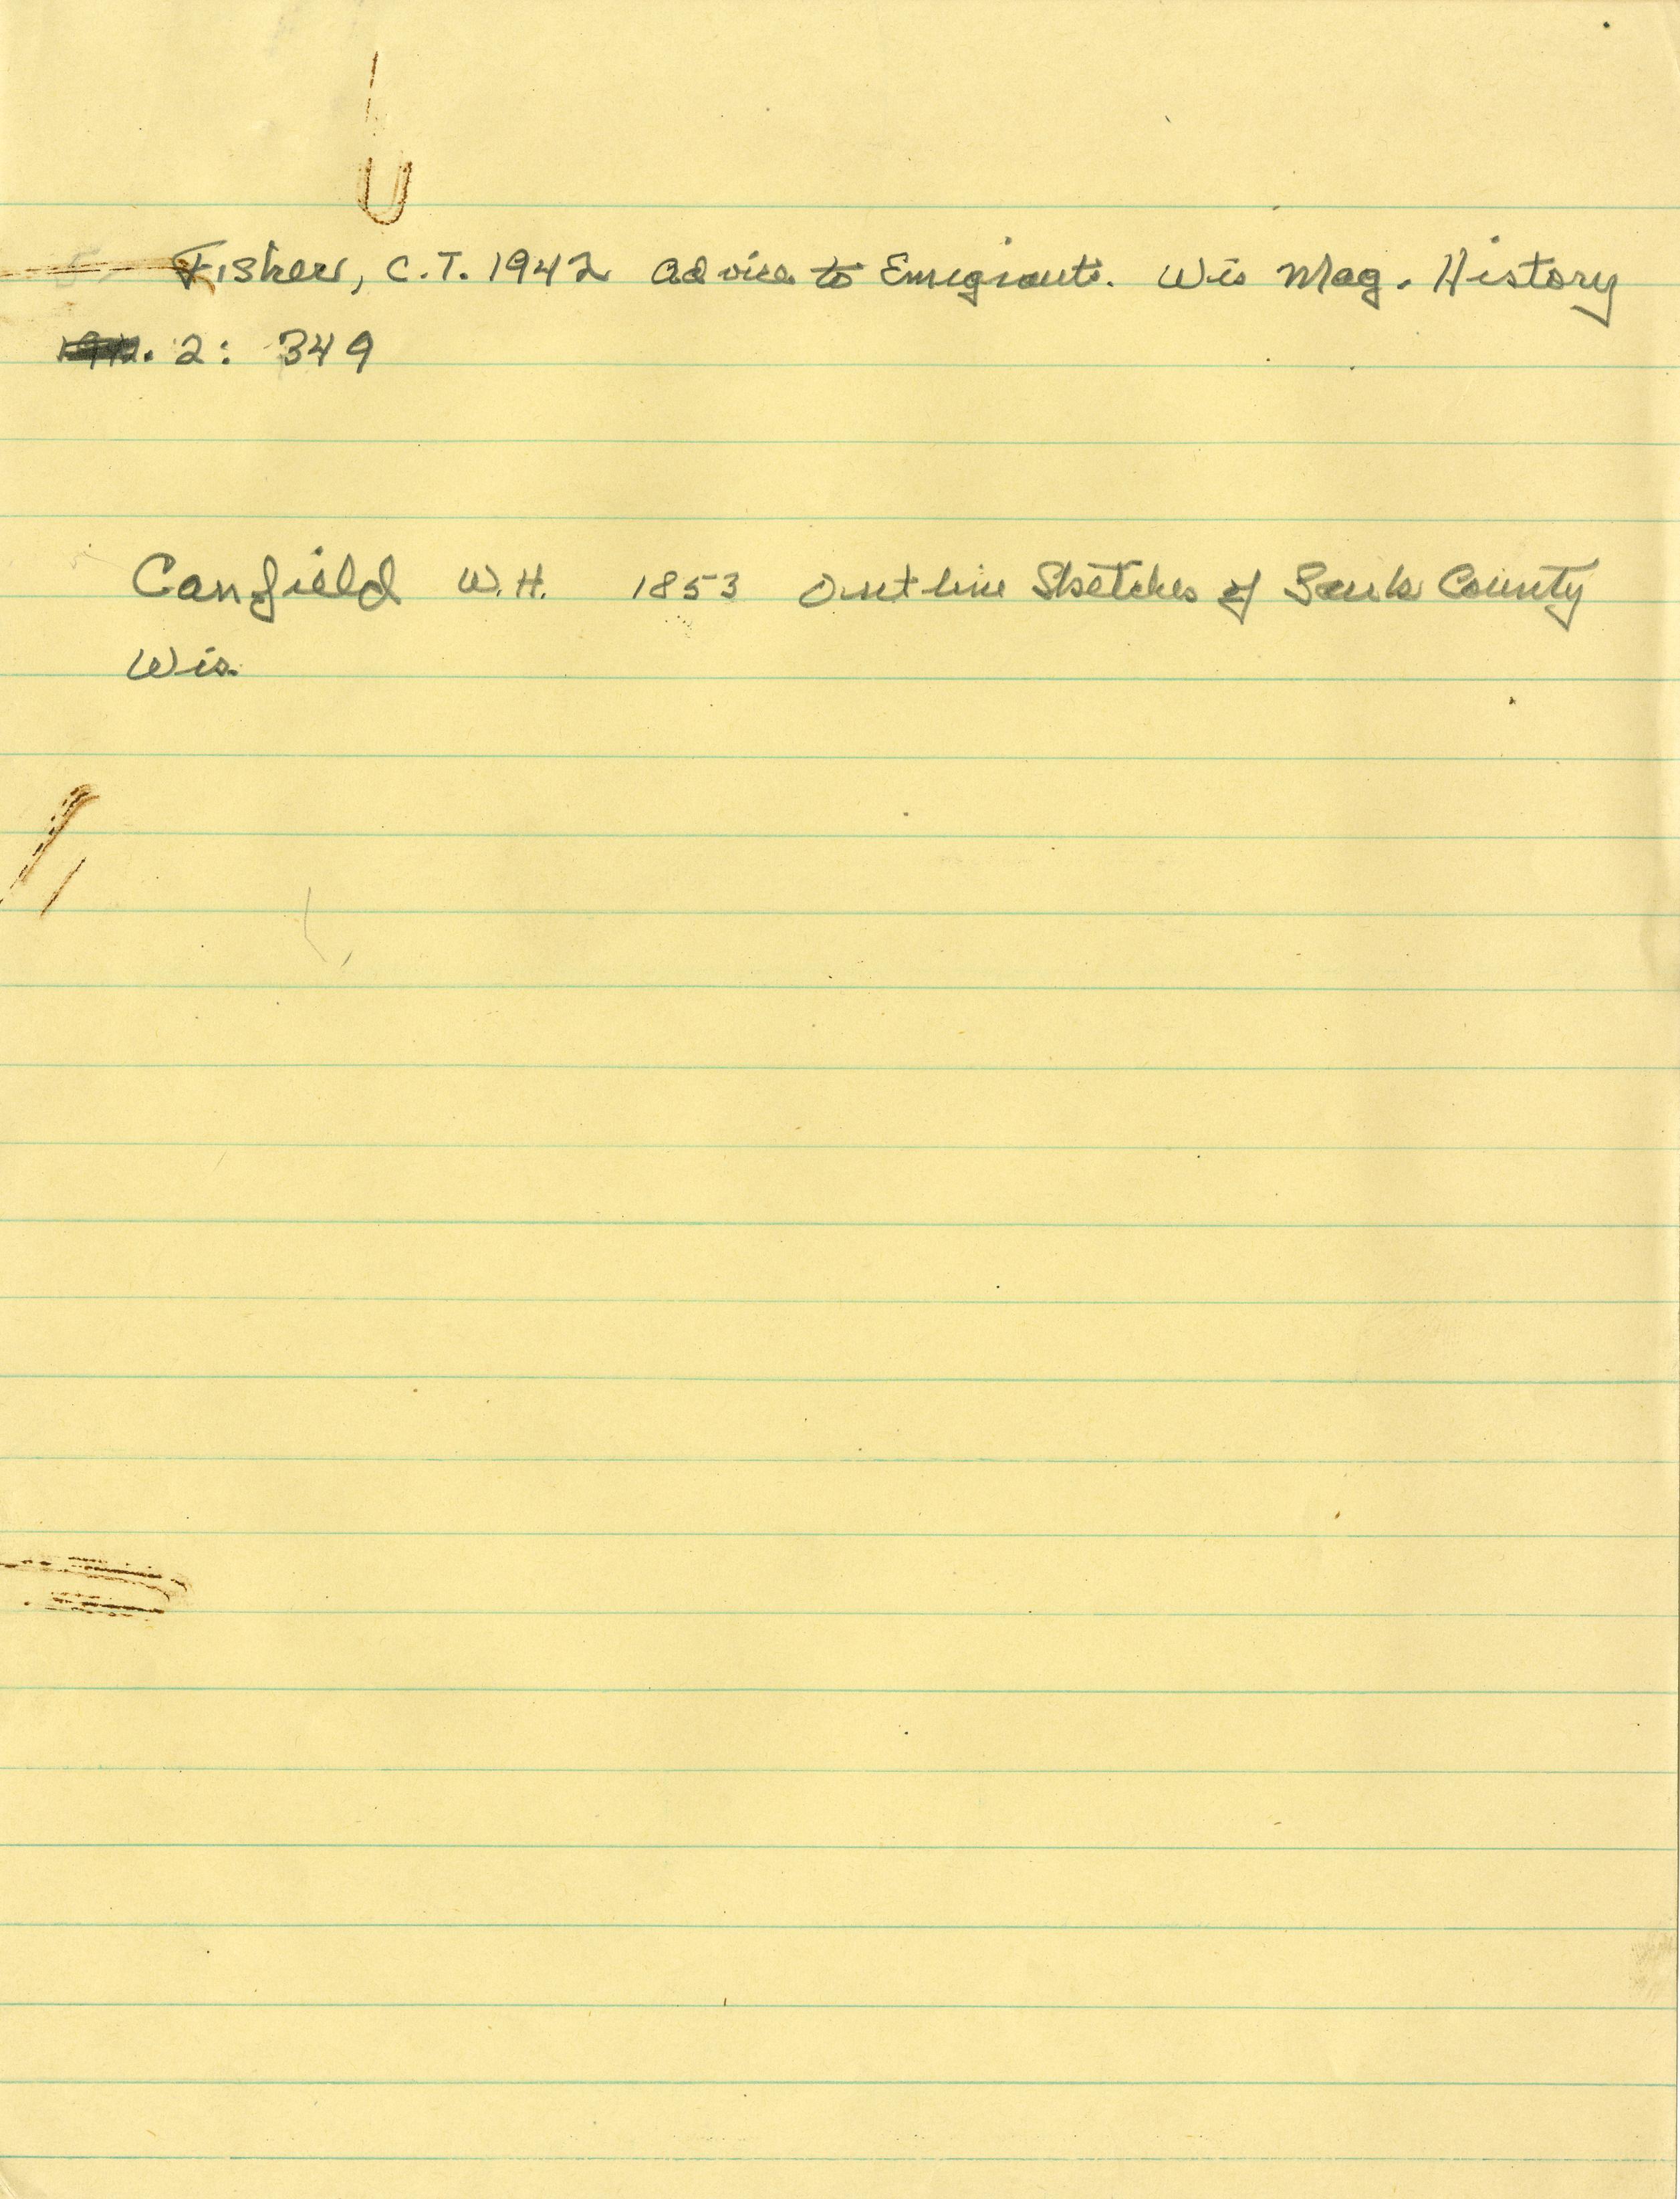 Fisher, C.T. 1942 Advice to Emigrants. Wis Mag. History
2: 349
Canfield W.H. 1853 Outline Sketches of Sauk County
Wis.